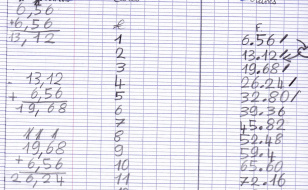 6,56
+6,56
13,12
13,12
+ 6,56
19,68
1 1 1
19,68
+ 6,56
26,24
£ F
1 6.56
2 13.12
3 19.68
4 26.24
5 32.80
6 39.36
7 45.82
8 52.48
9 59.4
10 65.60
11 72.16